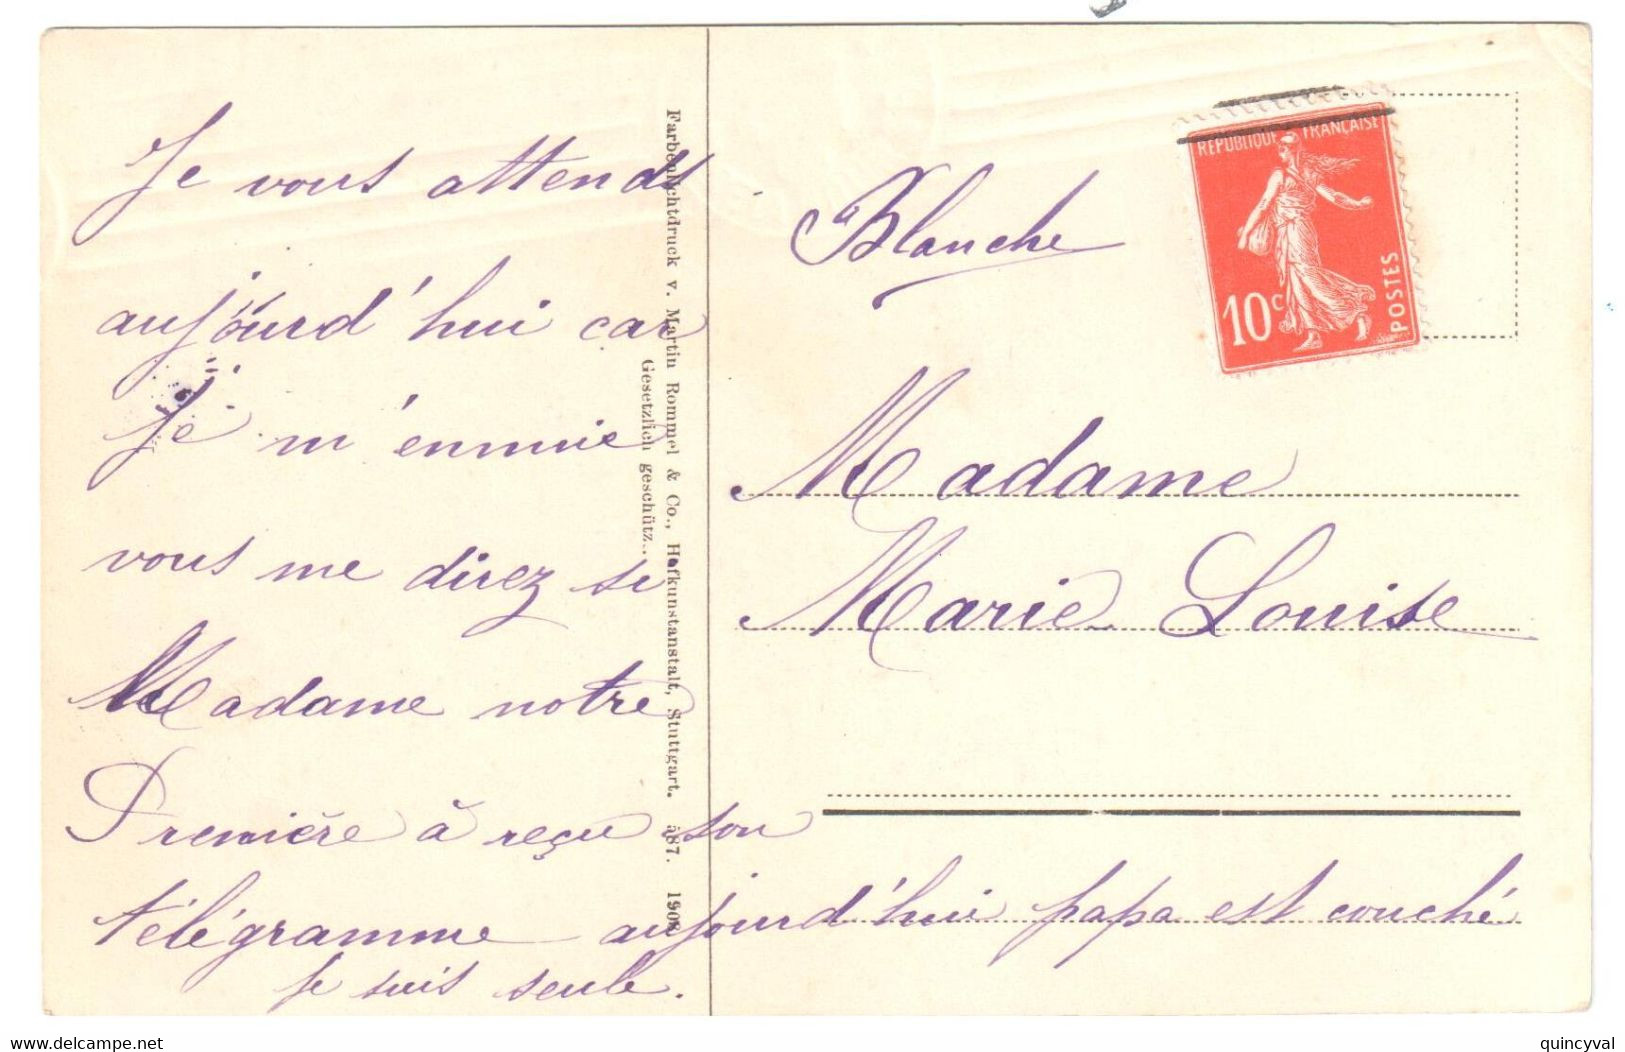 Je vous attends
aujourd'hui car
Je m'ennuie
vous me direz si
Madame notre
Première à reçu son
télégramme aujourd'hui papa est couché
Je suis seule.
Farbenlichtdruck v. Martin Rommel & Co., Hofkunstanstalt, Stuttgart. 587. 1908
Gesetzlich geschütz..
Blanche
REPUBLIQUE FRANÇAISE
10c
POSTES
Madame
Marie Louise
www.delcampe.net
quincyval